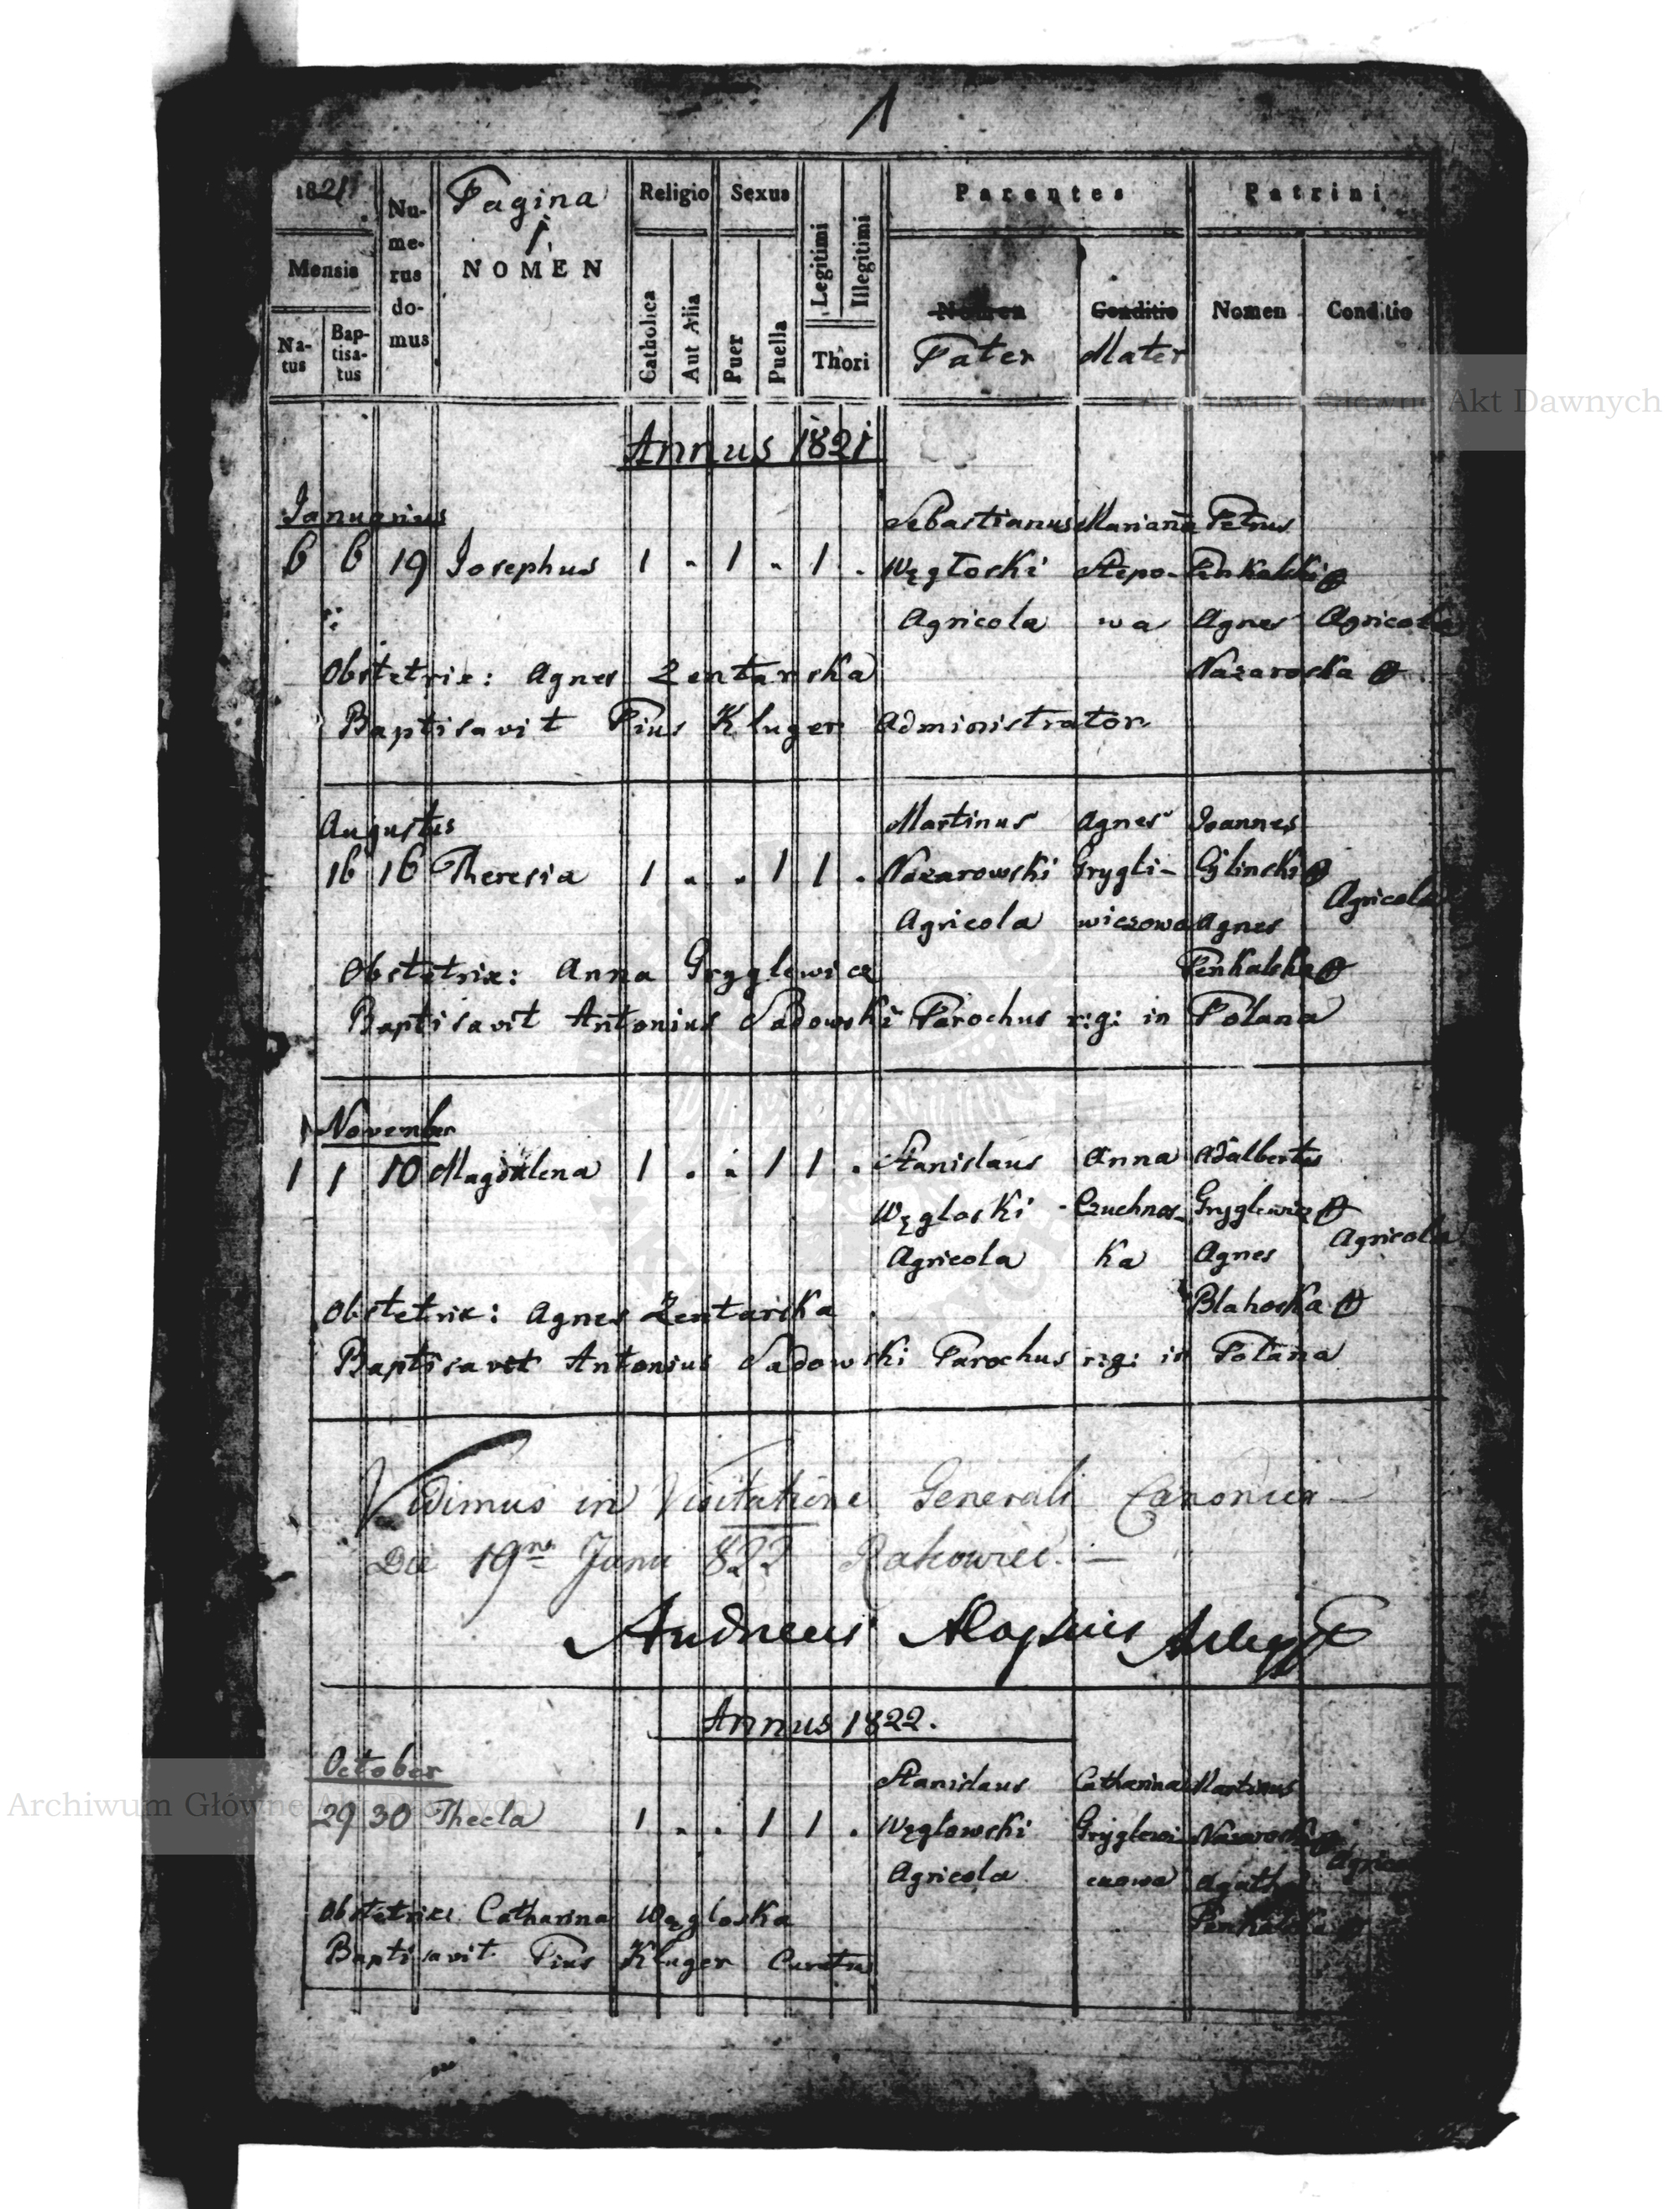 1
1821 Nu-me-rus do-mus Pagina 1. NOMEN Religio Sexus Legitimi Illegitimi Parentes Patrini
Mensis
Na-tus Bap-tisa-tus Catholica Aut Alia Puer Puella Thori Nomen Conditio Nomen Conditio
Pater Mater
Archiwum Główne Akt Dawnych
Annus 1821
Januarius Sebastianus Marianna Petrus
6 6 19 Josephus 1 . 1 . 1 . Węgłoski Stepo- Penkalski
Agricola wa Agnes Agricola
Obstetrix: Agnes Zentarska Nazaroska
Baptisavit Pius Kluger Administrator
Augustus Martinus Agnes Joannes
16 16 Theresia 1 . . 1 1 . Nazarowski Grygli- Gilinski
Agricola wiczowa Agnes Agricola
Obstetrix: Anna Gryglewicz Penkalska
Baptisavit Antonius Sadowski Parochus r:g: in Polana
November
1 1 10 Magdalena 1 . . 1 1 . Stanislaus Anna Adalbertus
Węgloski Czuchnos- Gryglewicz
Agricola ka Agnes Agricola
Obstetrix: Agnes Zentarska Blahoska
Baptisavit Antonius Sadowski Parochus r:g: in Polana
Vidimus in Visitatione Generali Canonica
Die 19na Junii 822 Rakowiec. —
Andreas Aloysius
Annus 1822.
October Stanislaus Catharina Martinus
29 30 Thecla 1 . . 1 1 . Węglowski Gryglewi- Nazaroski
Agricola czowa Agatha Agricola
Obstetrix Catharina Węgloska Penkalska
Baptisavit Pius Kluger Curatus
Archiwum Główne Akt Dawnych